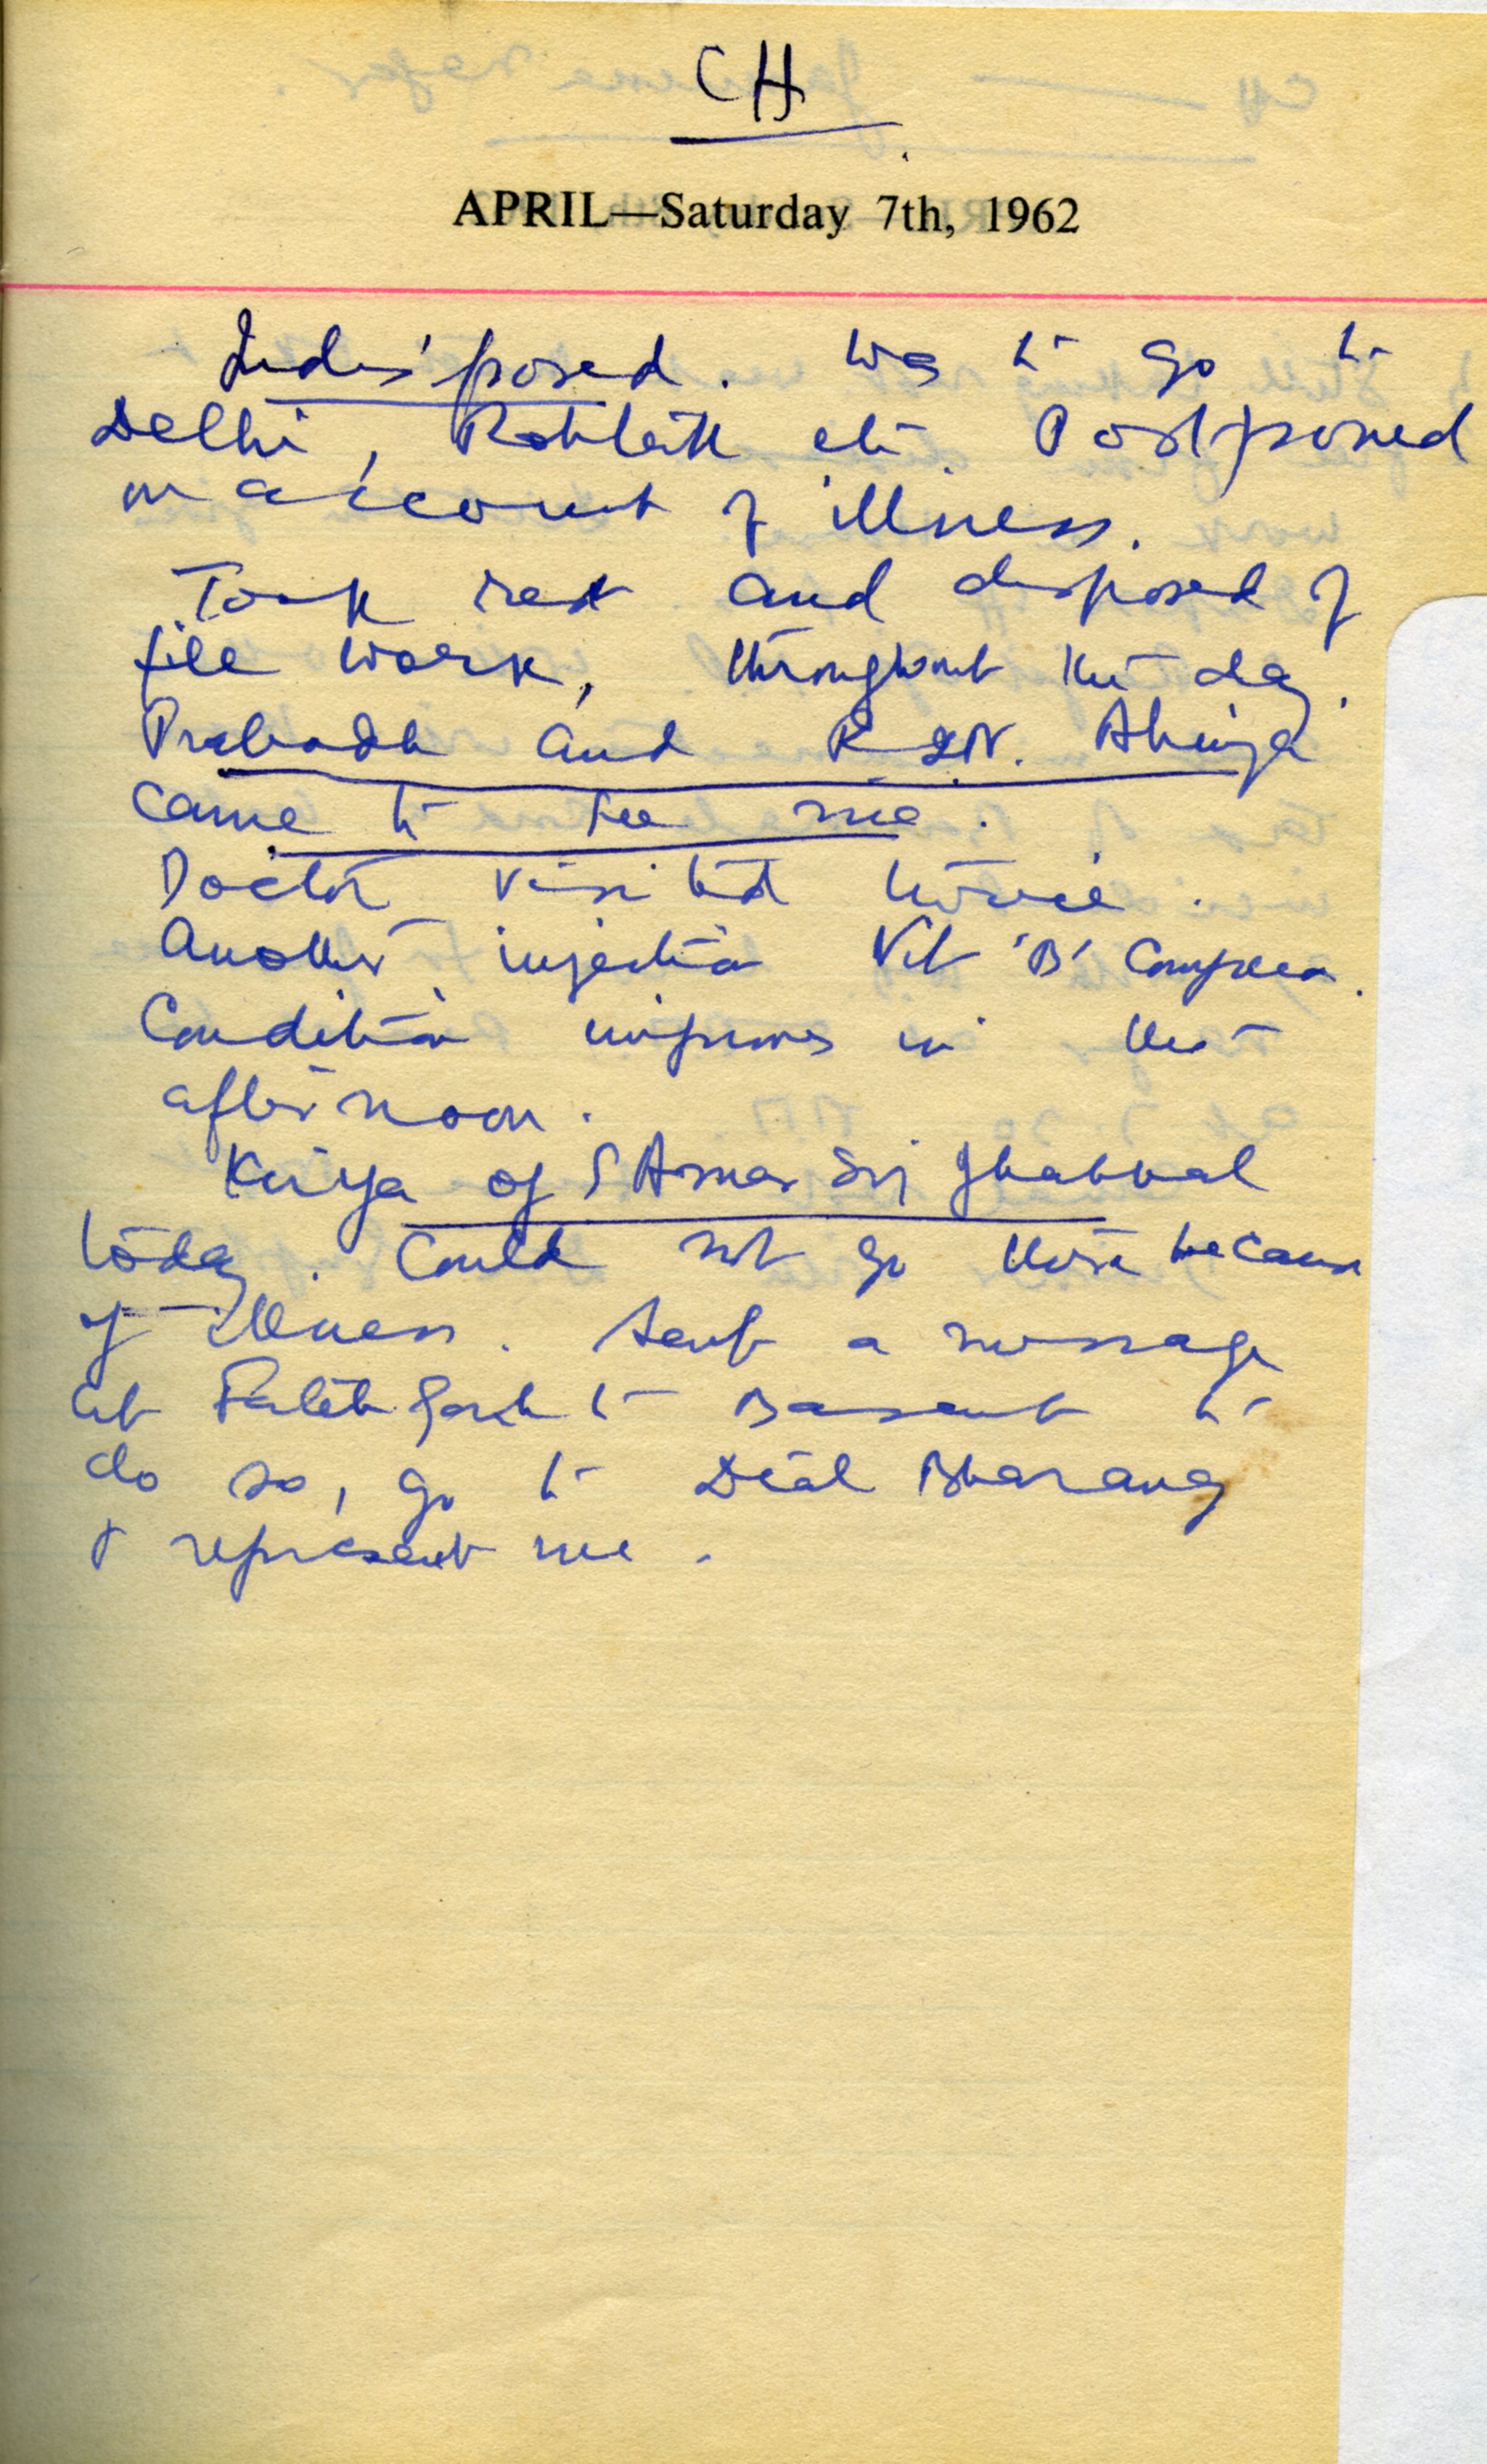 CH
APRIL—Saturday 7th, 1962
Indisposed. Was to go to
Delhi, Rohtak etc. Postponed
on account of illness.
Took rest and disposed of
file work, throughout the day.
Prabodh and Ahuja
came to see me.
Doctor visited twice.
Another injection Vit 'B' Complex.
Condition improves in the
afternoon.
Kirya of S Amar Sij Jhabbal
today. Could not go there because
of illness. Sent a message
at Fatehgarh to Basant to
do so, go to Dial Bharang
& represent me.